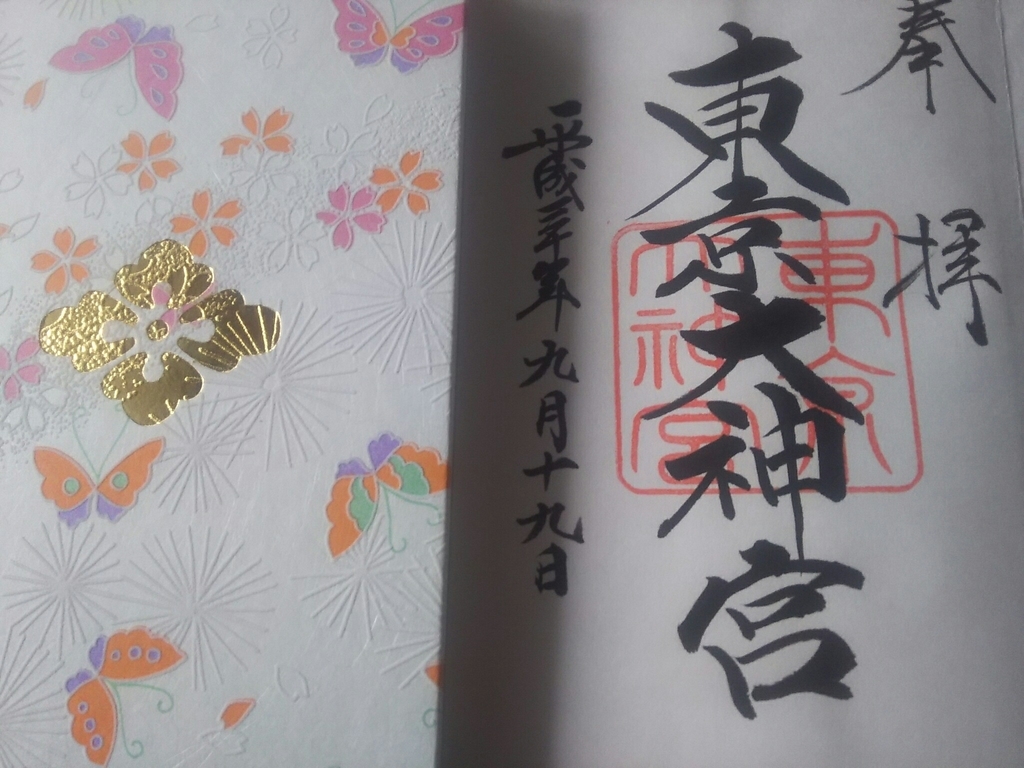 奉拝
東京大神宮
平成三十年九月十九日
東京
大神宮